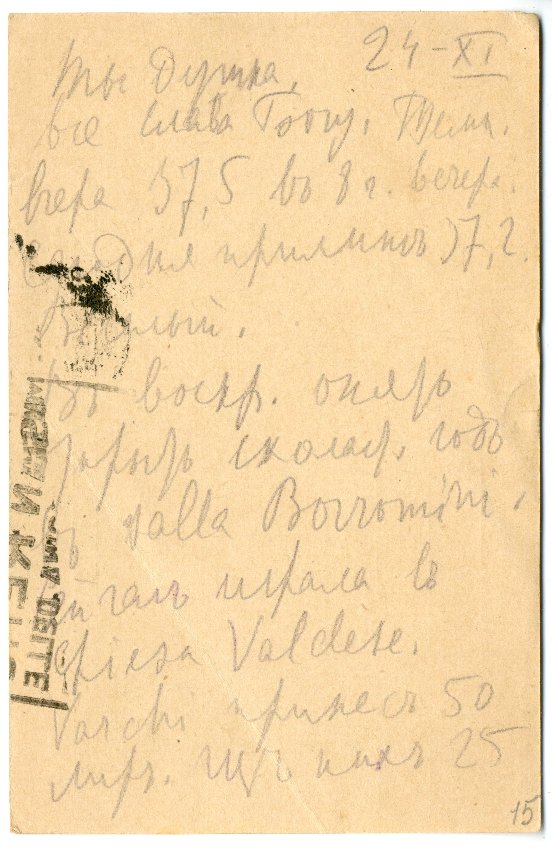 24-XI
Ты Душка,
все слава Богу. Темп.
вчера 37,5 въ 8 ч. вечера.
Сегодня приливъ 37,2.
Веселый.
Въ воскр. опять
годъ
salla Borromini,
играла въ
Chiesa Valdese.
Varchi принесъ 50
лиръ. Изъ нихъ 25
15